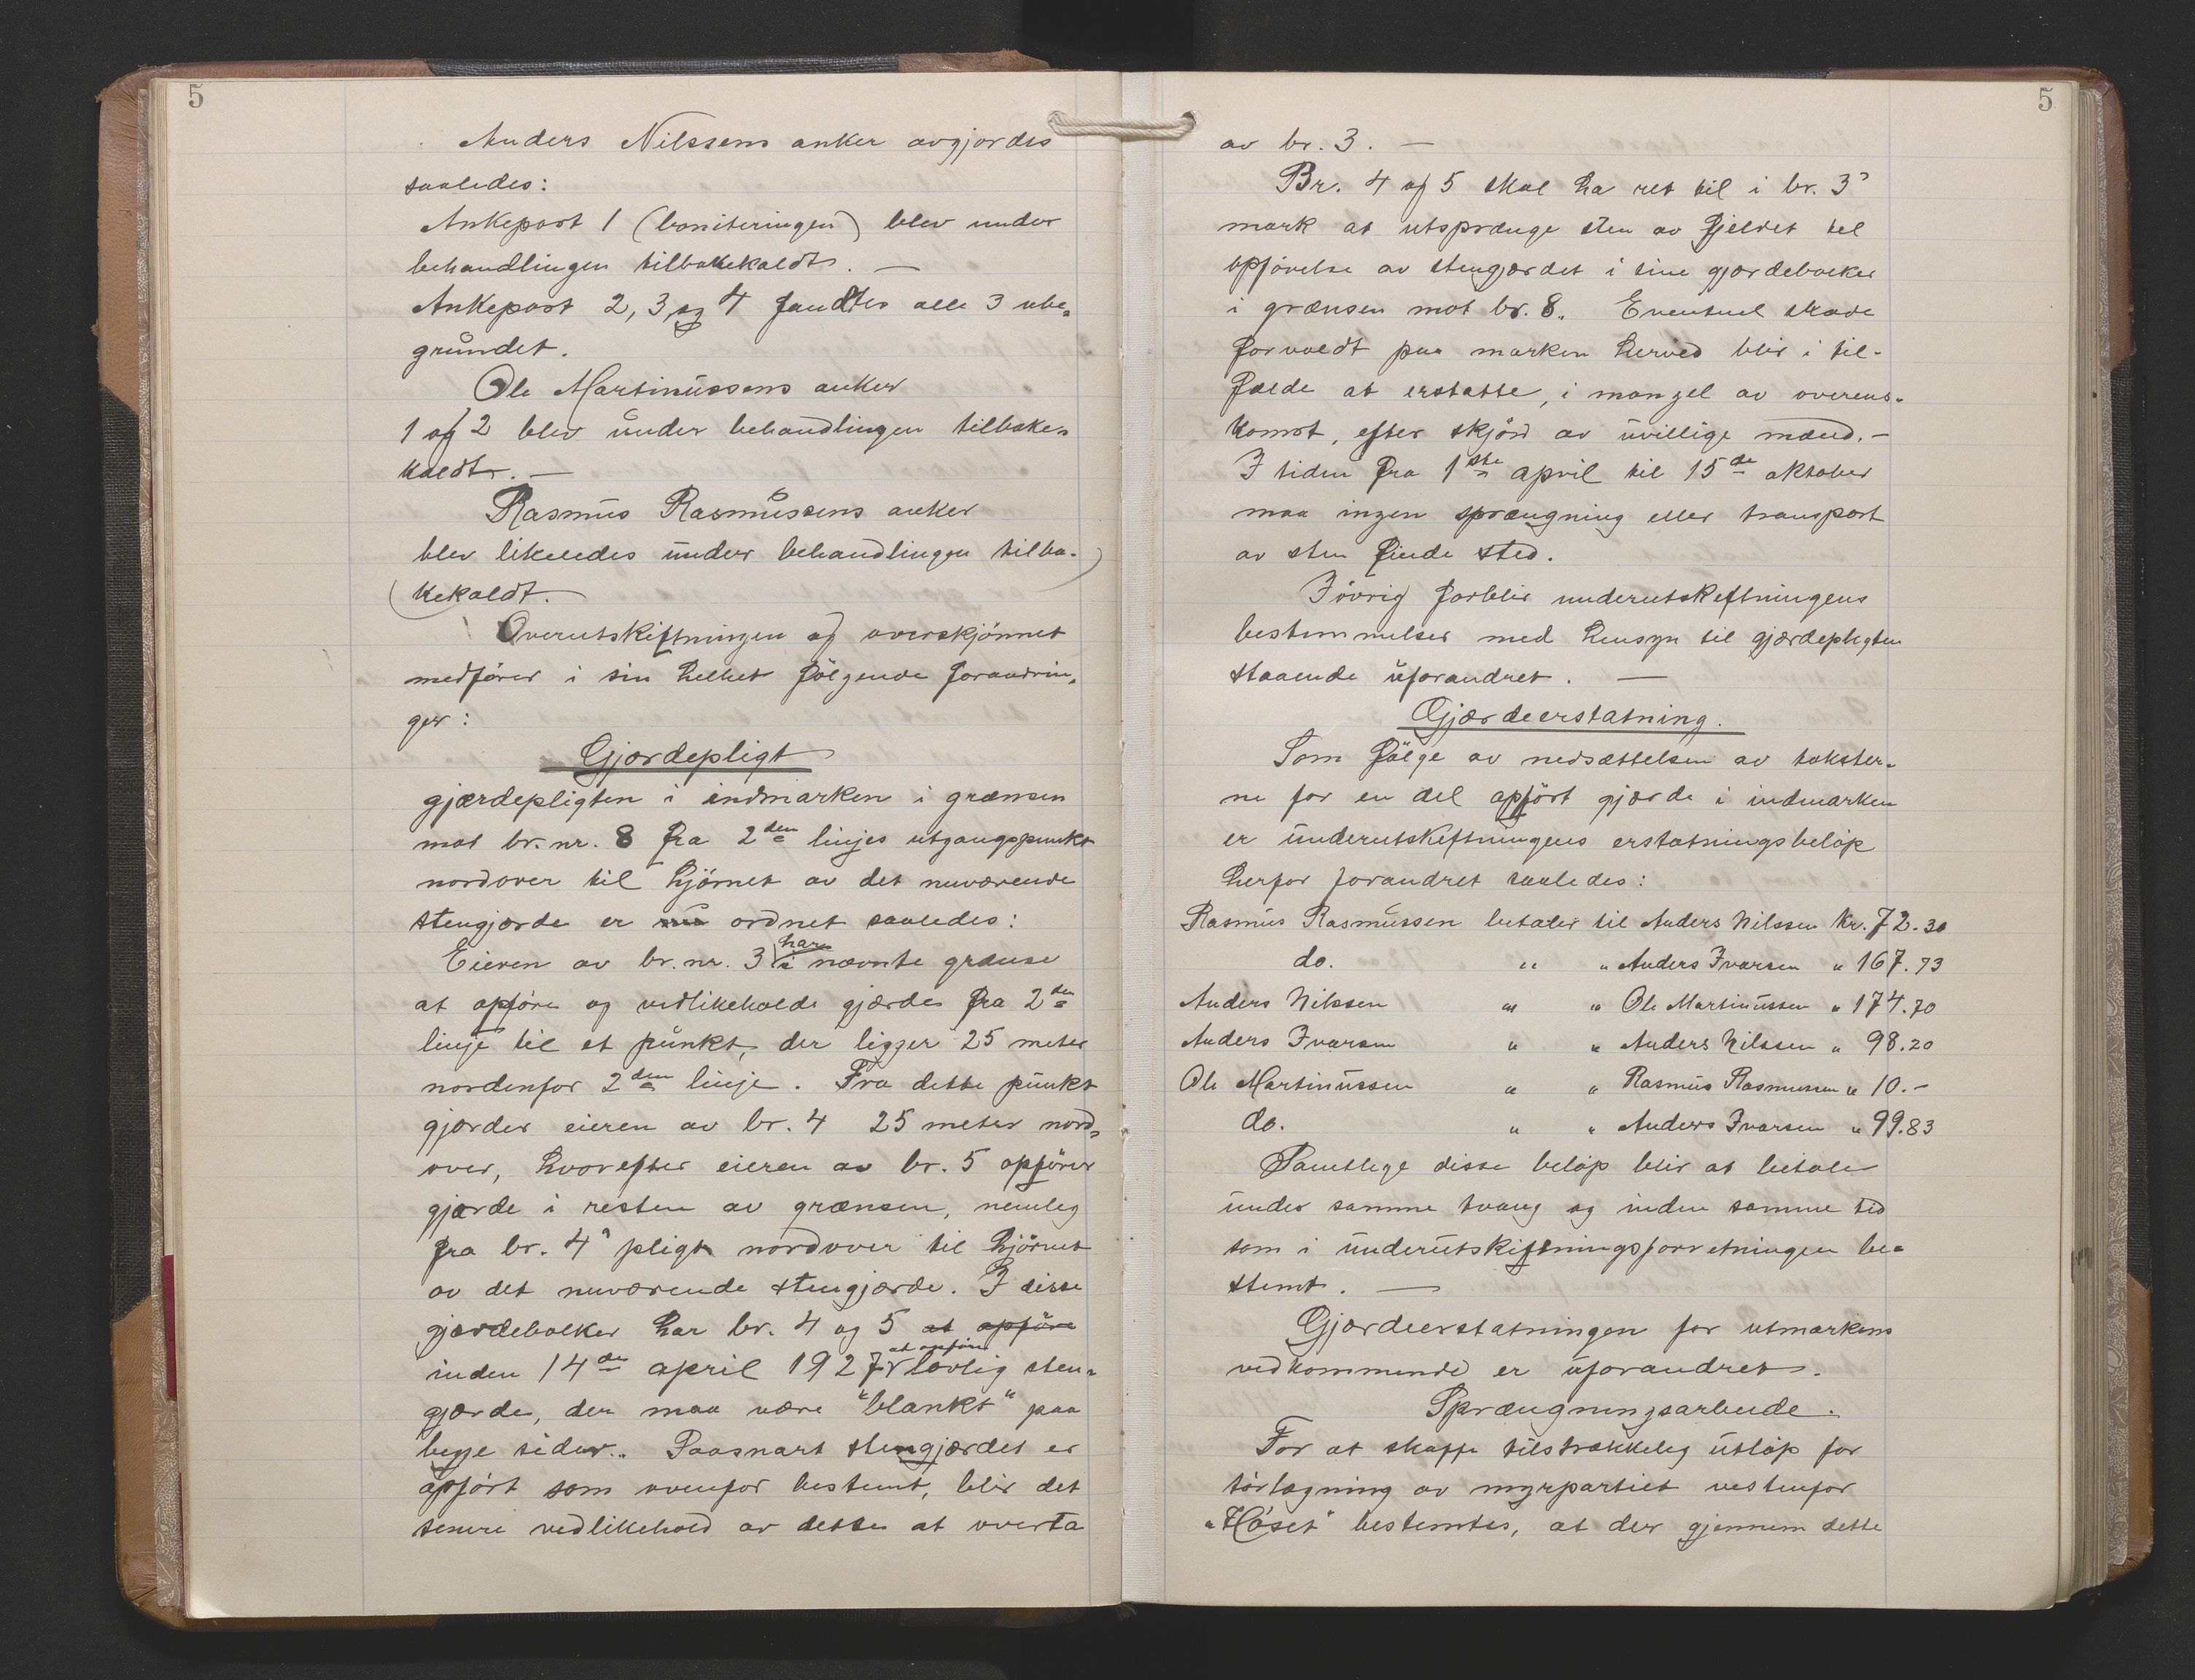 5
Anders Nilssens anker avgjordes
saaledes:
Ankepost 1 (boniteringen) blev under
behandlingen tilbakekaldt. —
Ankepost 2, 3, og 4 fandtes alle 3 ube-
grundet.
Ole Martinussens anker
1 og 2 blev under behandlingen tilbake-
kaldt. —
Rasmus Rasmussens anker
blev likeledes under behandlingen tilba-
kekaldt.
Overutskiftningen og overskjønnet
medfører i sin helhet følgende forandrin-
ger:
Gjærdepligt
gjærdepligten i indmarken i grænsen
mot br. nr. 8 fra 2den linjes utgangspunkt
nordover til hjørnet av det nuværende
stengjærde er nu ordnet saaledes:
Eieren av br. nr. 3 har i nævnte grænse
at opføre og vedlikeholde gjærde fra 2den
linje til et punkt, der ligger 25 meter
nordenfor 2den linje. Fra dette punkt
gjærder eieren av br. 4 25 meter nord-
over, hvorefter eieren av br. 5 opfører
gjærde i resten av grænsen, nemleg
fra br. 4's pligt nordover til hjørnet
av det nuværende stengjærde. I disse
gjærdebolker har br. 4 og 5 at opføre
inden 14de april 1927 at opføre lovlig sten-
gjærde, der maa være "blankt" paa
begge sider. Saasnart stengjærdet er
opført som ovenfor bestemt, blir det
senere vedlikehold av dette at overta
5
av br. 3. —
Br. 4 og 5 skal ha ret til i br. 3's
mark at utsprænge sten av fjeldet til
opførelse av stengjærdet i sine gjærdebolker
i grænsen mot br. 8. Eventuel skade
forvoldt paa marken herved blir i til-
fælde at erstatte, i mangel av overens-
komst, efter skjøn av uvillige mænd. —
I tiden fra 1ste april til 15de oktober
maa ingen sprængning eller transport
av sten finde sted.
Iøvrig forblir underutskiftningens
bestemmelser med hensyn til gjærdepligten
staaende uforandret. —
Gjærdeerstatning.
Som følge av nedsættelsen av takster-
ne for en del opført gjærde i indmarken
er underutskiftningens erstatningsbeløp
herfor forandret saaledes:
Rasmus Rasmussen betaler til Anders Nilssen kr. 72.30
do. " " Anders Ivarsen " 167.73
Anders Nilssen " " Ole Martinussen " 174.70
Anders Ivarsen " " Anders Nilssen " 98.20
Ole Martinussen " " Rasmus Rasmussen " 10.-
do. " " Anders Ivarsen " 99.83
Samtlige disse beløp blir at betale
under samme tvang og inden samme tid
som i underutskiftningsforretningen be-
stemt. —
Gjærdeerstatningen for utmarkens
vedkommende er uforandret.
Sprængningsarbeide.
For at skaffe tilstrækkelig utløp for
tørlægning av myrpartiet vestenfor
"Håset" bestemtes, at der gjennem dette